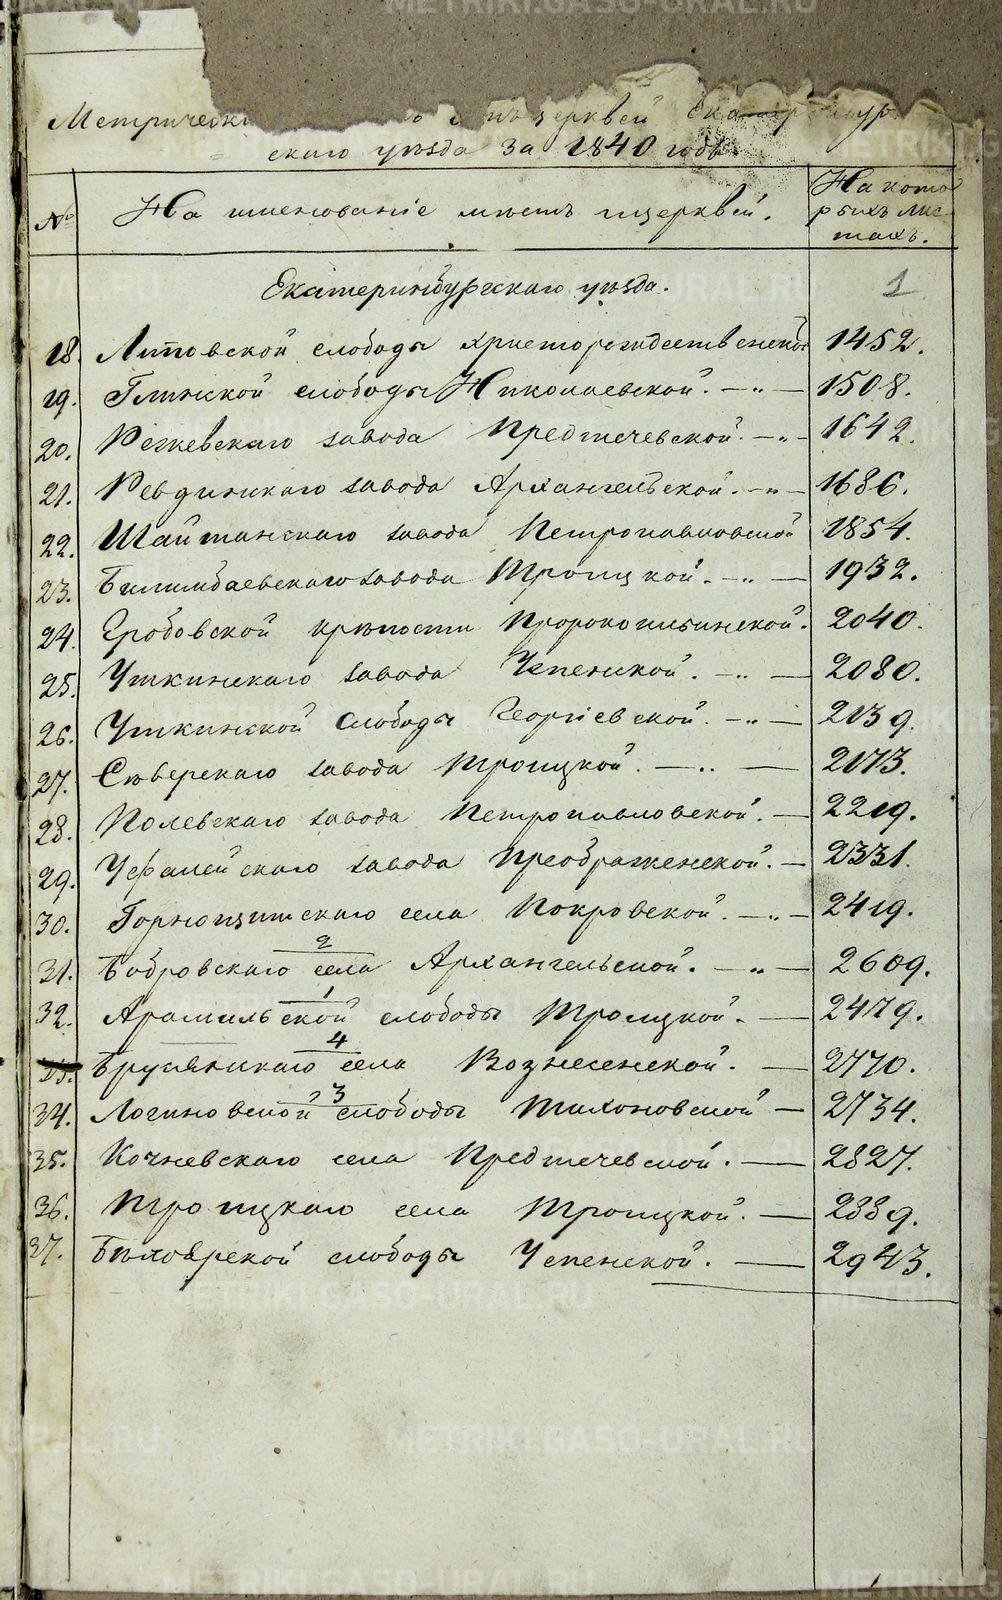 METRIKI.GASO-URAL.RU
Метрически церквей Екатер бур
скаго уѣзда за 1840 годъ.
№
На именованіе мѣстъ и церквей.
На кото
рыхъ лис
тахъ.
Екатеринбургскаго уѣзда.
1
18. Липовской слободы Христорождественской 1452.
19. Глинской слободы Николаевской. — „ — 1508.
20. Режевскаго завода Предтечевской. — „ — 1642.
21. Ревдинскаго завода Архангельской. — „ — 1686.
22. Шайтанскаго завода Петропавловской 1854.
23. Билимбаевскаго завода Троицкой. — „ — 1932.
24. Гробовской крѣпости Пророкоильинской. 2040.
25. Уткинскаго завода Успенской. — „ — 2080.
26. Уткинской Слободы Георгіевской. — „ — 2139.
27. Сѣверскаго завода Троицкой. — „ — 2173.
28. Полевскаго завода Петропавловской. — 2219.
29. Уфалейскаго завода Преображенской. — 2331.
30. Горнощитскаго села Покровской. — „ — 2419.
2
31. Бобровскаго села Архангельской. — „ — 2609.
1
32. Арамильской слободы Троицкой. — 2479.
4
33. Брусянскаго села Вознесенской. — 2770.
3
34. Логиновской слободы Тихоновской — 2734.
35. Кочневскаго села Предтечевской. — 2827.
36. Троицкаго села Троицкой. — 2889.
37. Бѣлоярской слободы Успенской. — 2943.